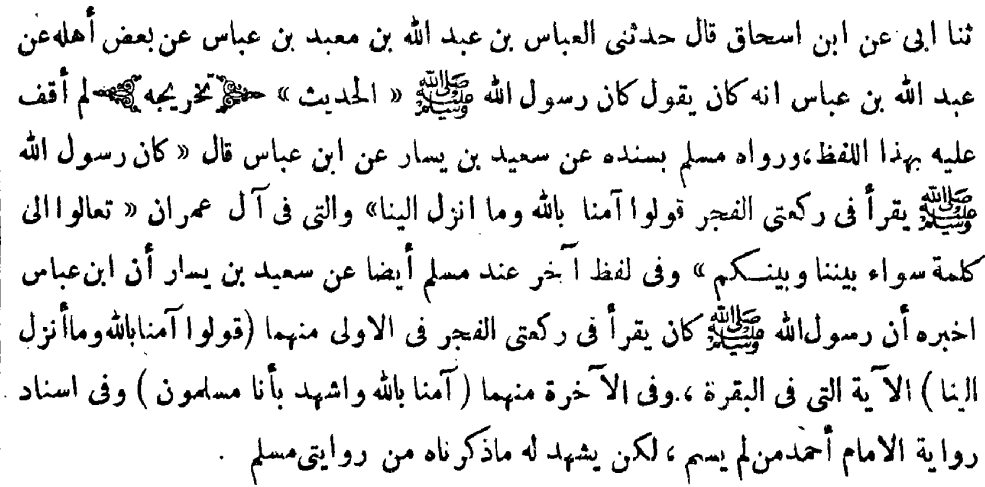 ثنا ابى عن ابن اسحاق قال حدثنى العباس بن عبد الله بن معبد بن عباس عن بعض أهله عن
عبد الله بن عباس انه كان يقول كان رسول الله ﷺ « الحديث » تخريجه لم أقف
عليه بهذا اللفظ، ورواه مسلم بسنده عن سعيد بن يسار عن ابن عباس قال « كان رسول الله
ﷺ يقرأ فى ركعتى الفجر قولوا آمنا بالله وما انزل الينا» والتى فى آل عمران « تعالوا الى
كلمة سواء بيننا وبينكم » وفى لفظ آخر عند مسلم أيضا عن سعيد بن يسار أن ابن عباس
اخبره أن رسول الله ﷺ كان يقرأ فى ركعتى الفجر فى الاولى منهما (قولوا آمنا بالله وما أنزل
الينا) الآية التى فى البقرة ، وفى الآخرة منهما ( آمنا بالله واشهد بأنا مسلمون ) وفى اسناد
رواية الامام أحمد من لم يسم ، لكن يشهد له ماذكرناه من روايتى مسلم .